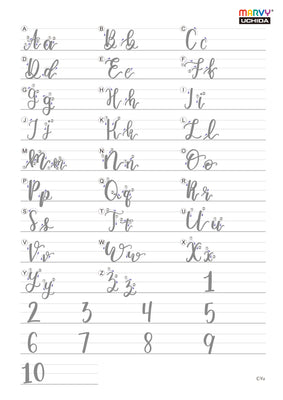 MARVY®
UCHIDA
A A a B B b C C c
D D d E E e F F f
G G g H H h I I i
J J j K K k L L l
M M m N N n O O o
P P p Q Q q R R r
S S s T T t U U u
V V v W W w X X x
Y Y y Z Z z 1
2 3 4 5
6 7 8 9
10
©Yu